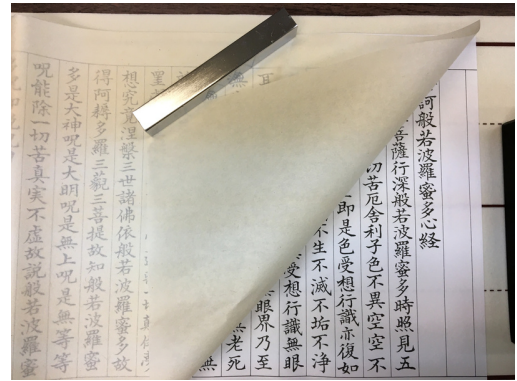 訶般若波羅蜜多心経
菩薩行深般若波羅蜜多時照見五
切苦厄舎利子色不異空空不
即是色受想行識亦復如
不生不滅不垢不浄
受想行識無眼
耳 眼界乃至
無 老死
無
想究竟涅槃三世諸佛依般若波羅蜜多故
得阿耨多羅三藐三菩提故知般若波羅蜜
多是大神呪是大明呪是無上呪是無等等
呪能除一切苦真実不虚故説般若波羅蜜